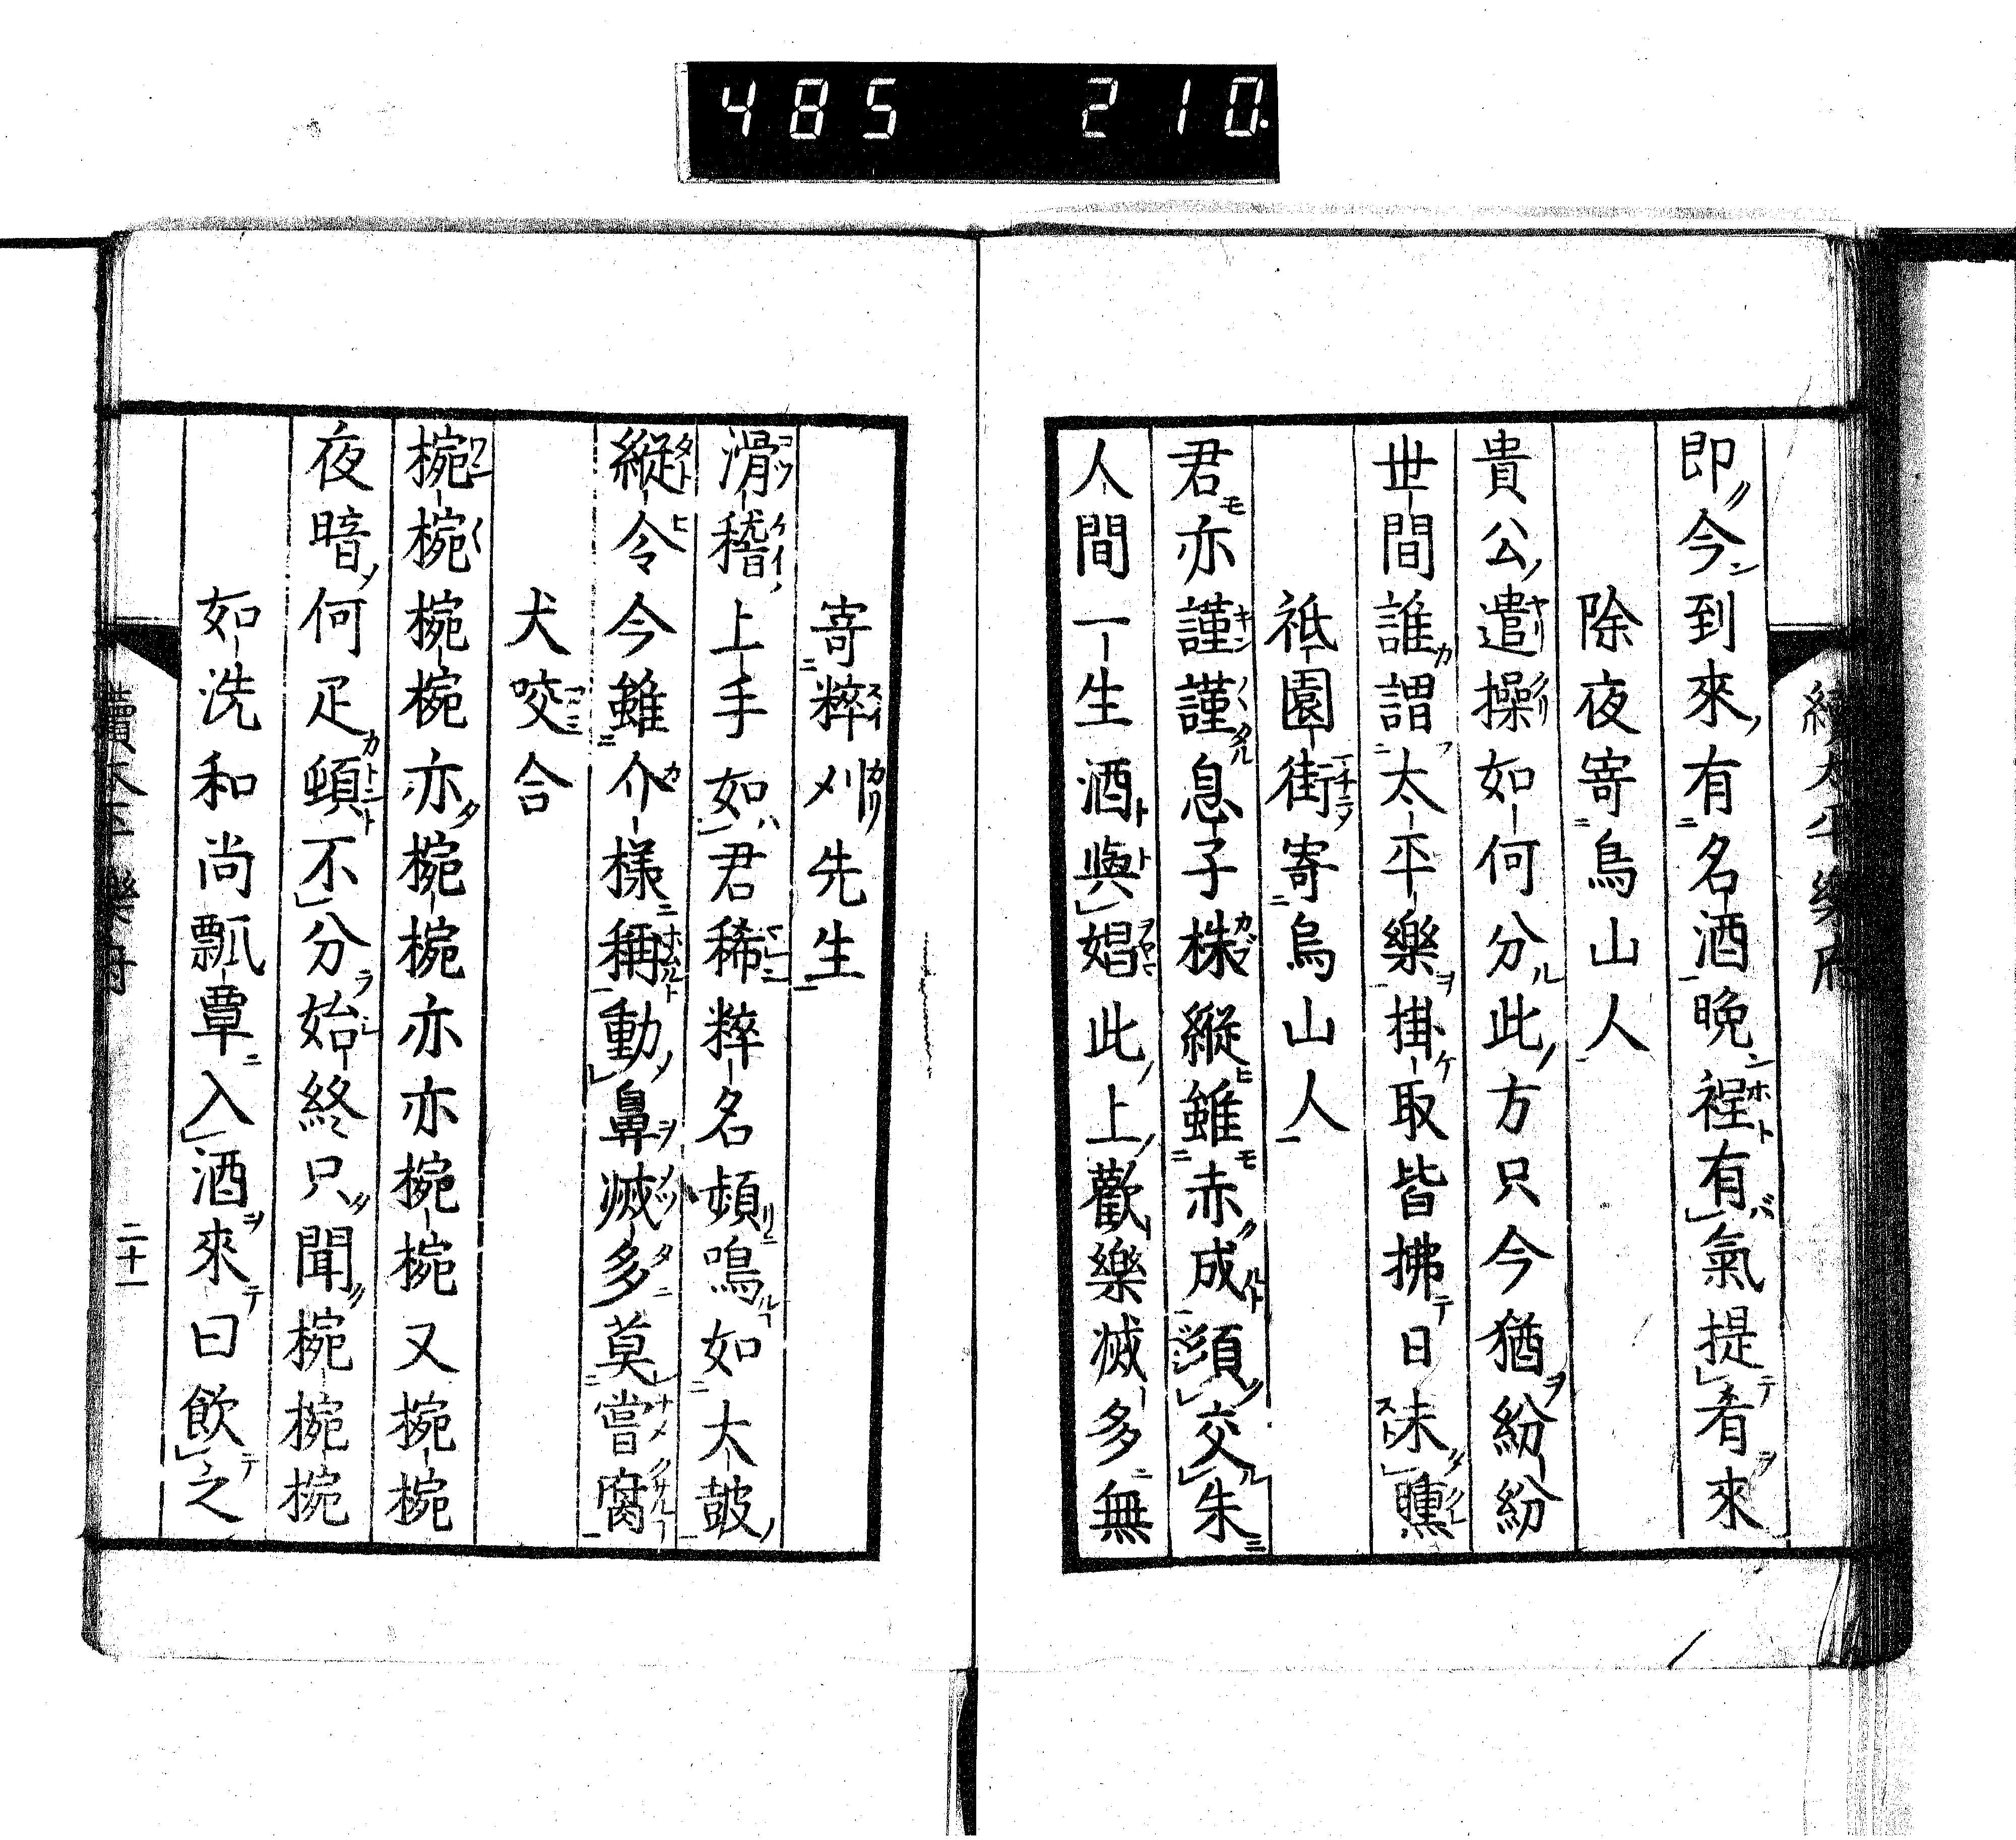 485 210.
續太平樂府
即今到來有名酒晩裎有氣提肴來
除夜寄烏山人
貴公遣操如何分此方只今猶紛紛
世間誰謂太平樂掛取皆拂日未曛
祗園街寄烏山人
君亦謹謹息子株縱雖赤成須交朱
人間一生酒與娼此上歡樂滅多無
寄粹刈先生
滑稽上手如君稀粹名頻鳴如太皷
縱令今雖介樣稱動鼻滅多莫嘗腐
犬咬合
椀椀椀椀亦椀椀亦亦椀椀又椀椀
夜暗何疋頓不分始終只聞椀椀椀
如洗和尚瓢覃入酒來曰飲之
續太平樂府
二十一